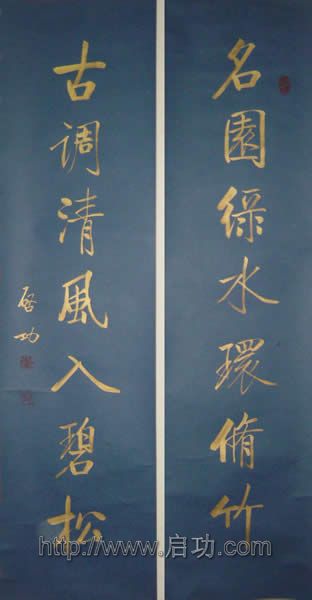 名園綠水環脩竹
古调清風入碧松
啓功
http://www.启功.com